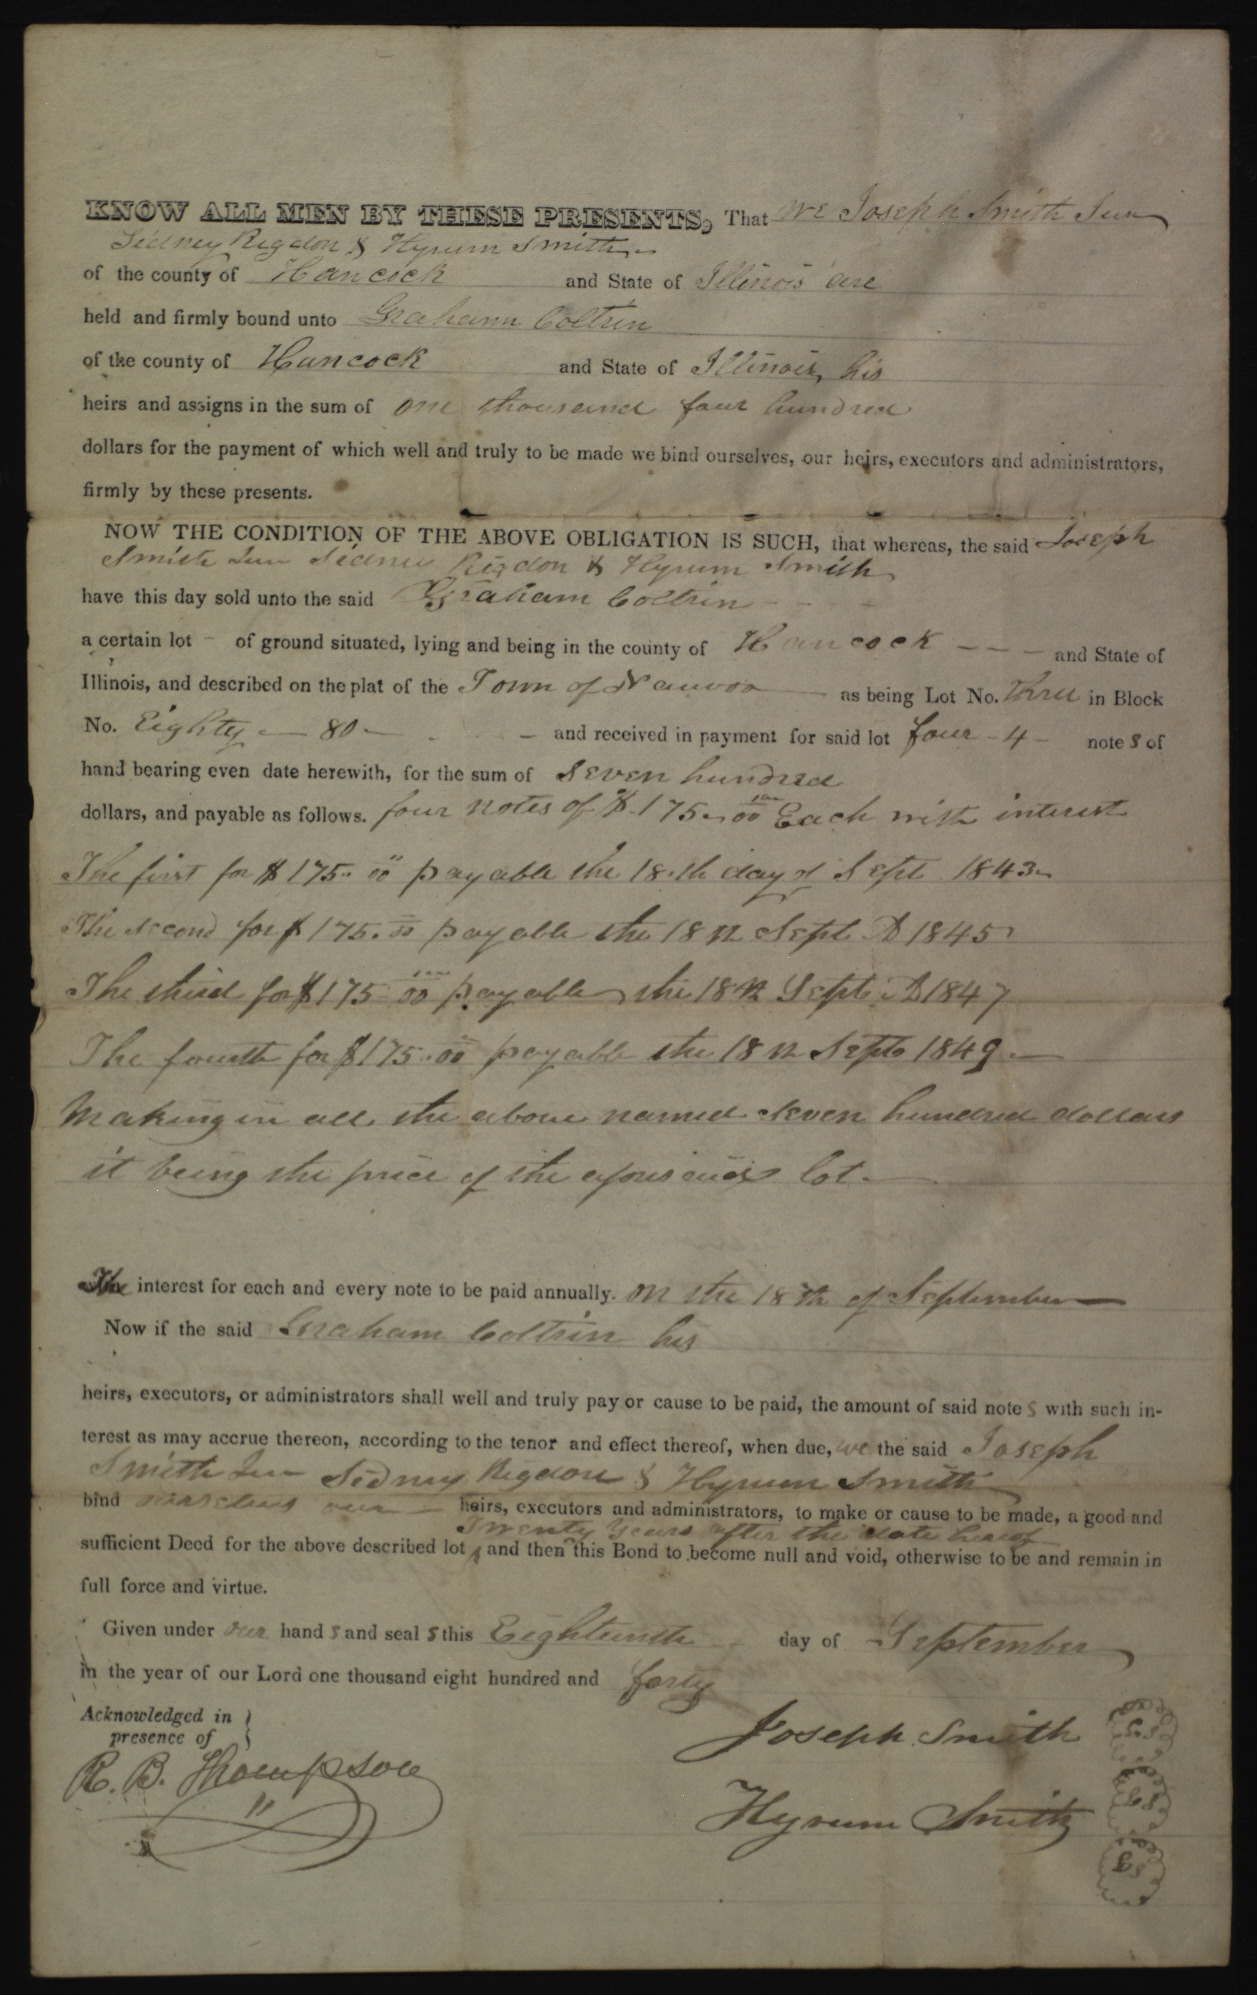 KNOW ALL MEN BY THESE PRESENTS, That We Joseph Smith Jun
Sidney Rigdon & Hyrum Smith
of the county of Hancock and State of Illinois are
held and firmly bound unto Graham Coltrin
of the county of Hancock and State of Illinois, his
heirs and assigns in the sum of one thousand four hundred
dollars for the payment of which well and truly to be made we bind ourselves, our heirs, executors and administrators,
firmly by these presents.
NOW THE CONDITION OF THE ABOVE OBLIGATION IS SUCH, that whereas, the said Joseph
Smith Jun Sidney Rigdon & Hyrum Smith
have this day sold unto the said Graham Coltrin - - -
a certain lot - of ground situated, lying and being in the county of Hancock - - - and State of
Illinois, and described on the plat of the Town of Nauvoo as being Lot No. three in Block
No. Eighty - 80 - - and received in payment for said lot four - 4 - note s of
hand bearing even date herewith, for the sum of seven hundred
dollars, and payable as follows. four notes of $ 175. 00 Each with interest
The first for $175.. 00 payable the 18th day of Sept. 1843
The second for $175. 00 payable the 18th Sept. AD 1845
The third for $175 00 payable the 18th Sept. AD 1847
The fourth for $175.. 00 payable the 18th Sept 1849 -
Making in all the above named seven hundred dollars
it being the price of the aforesaid lot -
The interest for each and every note to be paid annually. on the 18th of September
Now if the said Graham Coltrin his
heirs, executors, or administrators shall well and truly pay or cause to be paid, the amount of said note s with such in-
terest as may accrue thereon, according to the tenor and effect thereof, when due, we the said Joseph
Smith Jun Sidney Rigdon & Hyrum Smith
bind ourselves our - heirs, executors and administrators, to make or cause to be made, a good and
Twenty years after the date hereof
sufficient Deed for the above described lot ^ and then this Bond to become null and void, otherwise to be and remain in
full force and virtue.
Given under our hand s and seal s this Eighteenth day of September
in the year of our Lord one thousand eight hundred and forty
Acknowledged in }
presence of }
R. B. Thompson
Joseph Smith LS
Hyrum Smith LS
LS